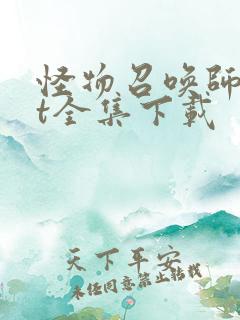 怪物召唤师
t全集下载
天下平安
未经同意禁止转载